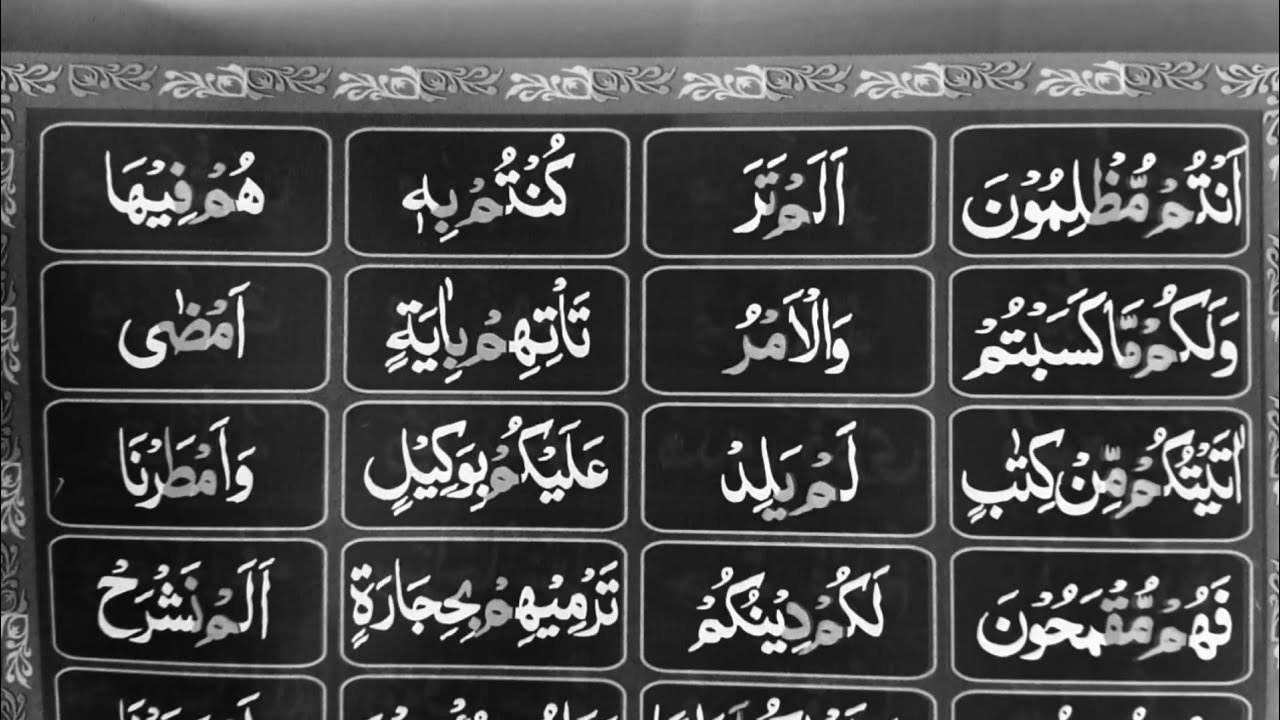 اَنْتُمْ مُّظْلِمُوْنَ اَلَمْ تَرَ كُنْتُمْ بِهٖ هُمْ فِيْهَا
وَلَكُمْ مَّا كَسَبْتُمْ وَالْاَمْرُ تَاْتِهِمْ بِاٰيَةٍ اَمْضٰى
اٰتَيْتُكُمْ مِّنْ كِتٰبٍ لَمْ يَلِدْ عَلَيْكُمْ بِوَكِيْلٍ وَاَمْطَرْنَا
فَهُمْ مُّقْمَحُوْنَ لَكُمْ دِيْنُكُمْ تَرْمِيْهِمْ بِحِجَارَةٍ اَلَمْ نَشْرَحْ